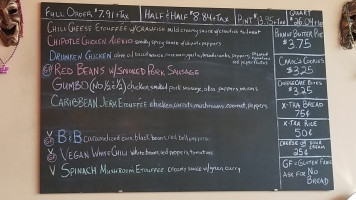 Full Order $7.91+Tax Half & Half $8.84+Tax Pint $13.95+Tax Quart $26.04+Tax
Chili Cheese Etouffee w/Crawfish mild creamy sauce w/ chili
Chipotle Chicken smoky spicy sauce w/ peppers
Drunken Chicken
Red Beans w/Smoked Pork Sausage
Gumbo (No ½ & ½) chicken, smoked pork sausage, okra, peppers, onions
Caribbean Jerk Etouffee chicken, carrots, mushrooms, coconut, peppers
B&B caramelized corn, black beans, red bell peppers
Vegan White Chili white beans, red peppers, tomatoes
V Spinach Mushroom Etouffee creamy sauce w/ green curry
Peanut Butter Pie
$3.75
Cookies
$3.25
$3.25
X-tra Bread
75¢
X-tra Rice
50¢
Cheese or Sour Cream
25¢
GF = Gluten Free
Ask for No Bread